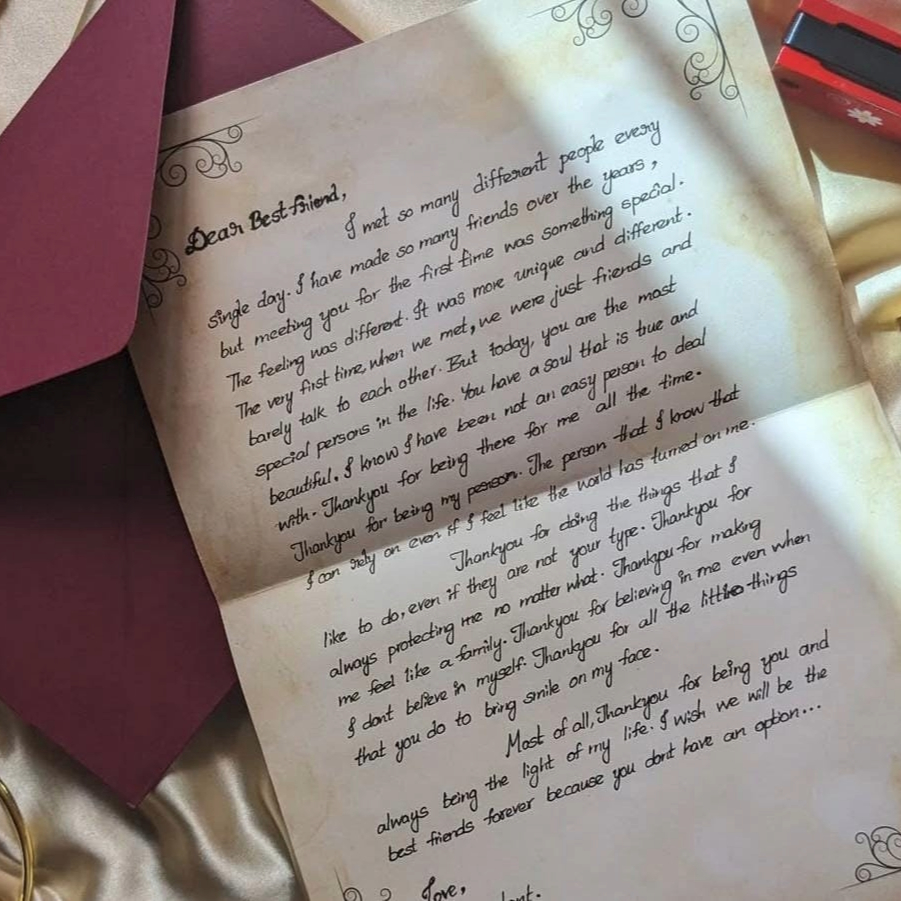 Dear Best friend,
I met so many different people every
single day. I have made so many friends over the years,
but meeting you for the first time was something special.
The feeling was different. It was more unique and different.
The very first time, when we met, we were just friends and
barely talk to each other. But today, you are the most
special persons in the life. You have a soul that is true and
beautiful. I know I have been not an easy person to deal
with. Thankyou for being there for me all the time.
Thankyou for being my person. The person that I know that
I can rely on even if I feel like the world has turned on me.
Thankyou for doing the things that I
like to do, even if they are not your type. Thankyou for
always protecting me no matter what. Thankyou for making
me feel like a family. Thankyou for believing in me even when
I dont believe in myself. Thankyou for all the little things
that you do to bring smile on my face.
Most of all, Thankyou for being you and
always being the light of my life. I wish we will be the
best friends forever because you dont have an option...
Love,